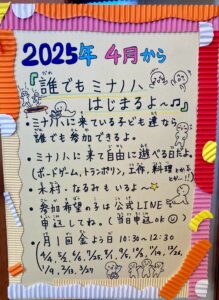 2025年 4月から
『誰でもミナノハ
はじまるよ〜♫』
・ミナノハに来ている子ども達なら
誰でも参加できるよ。
・ミナノハに来て自由に遊べる日だよ。
(ボードゲーム、トランポリン、工作、料理
・木村・なるみもいるよ〜
・参加希望の子は公式LINE
申込してね。(当日申込ok)
・月1回金よう日 10:30〜12:30